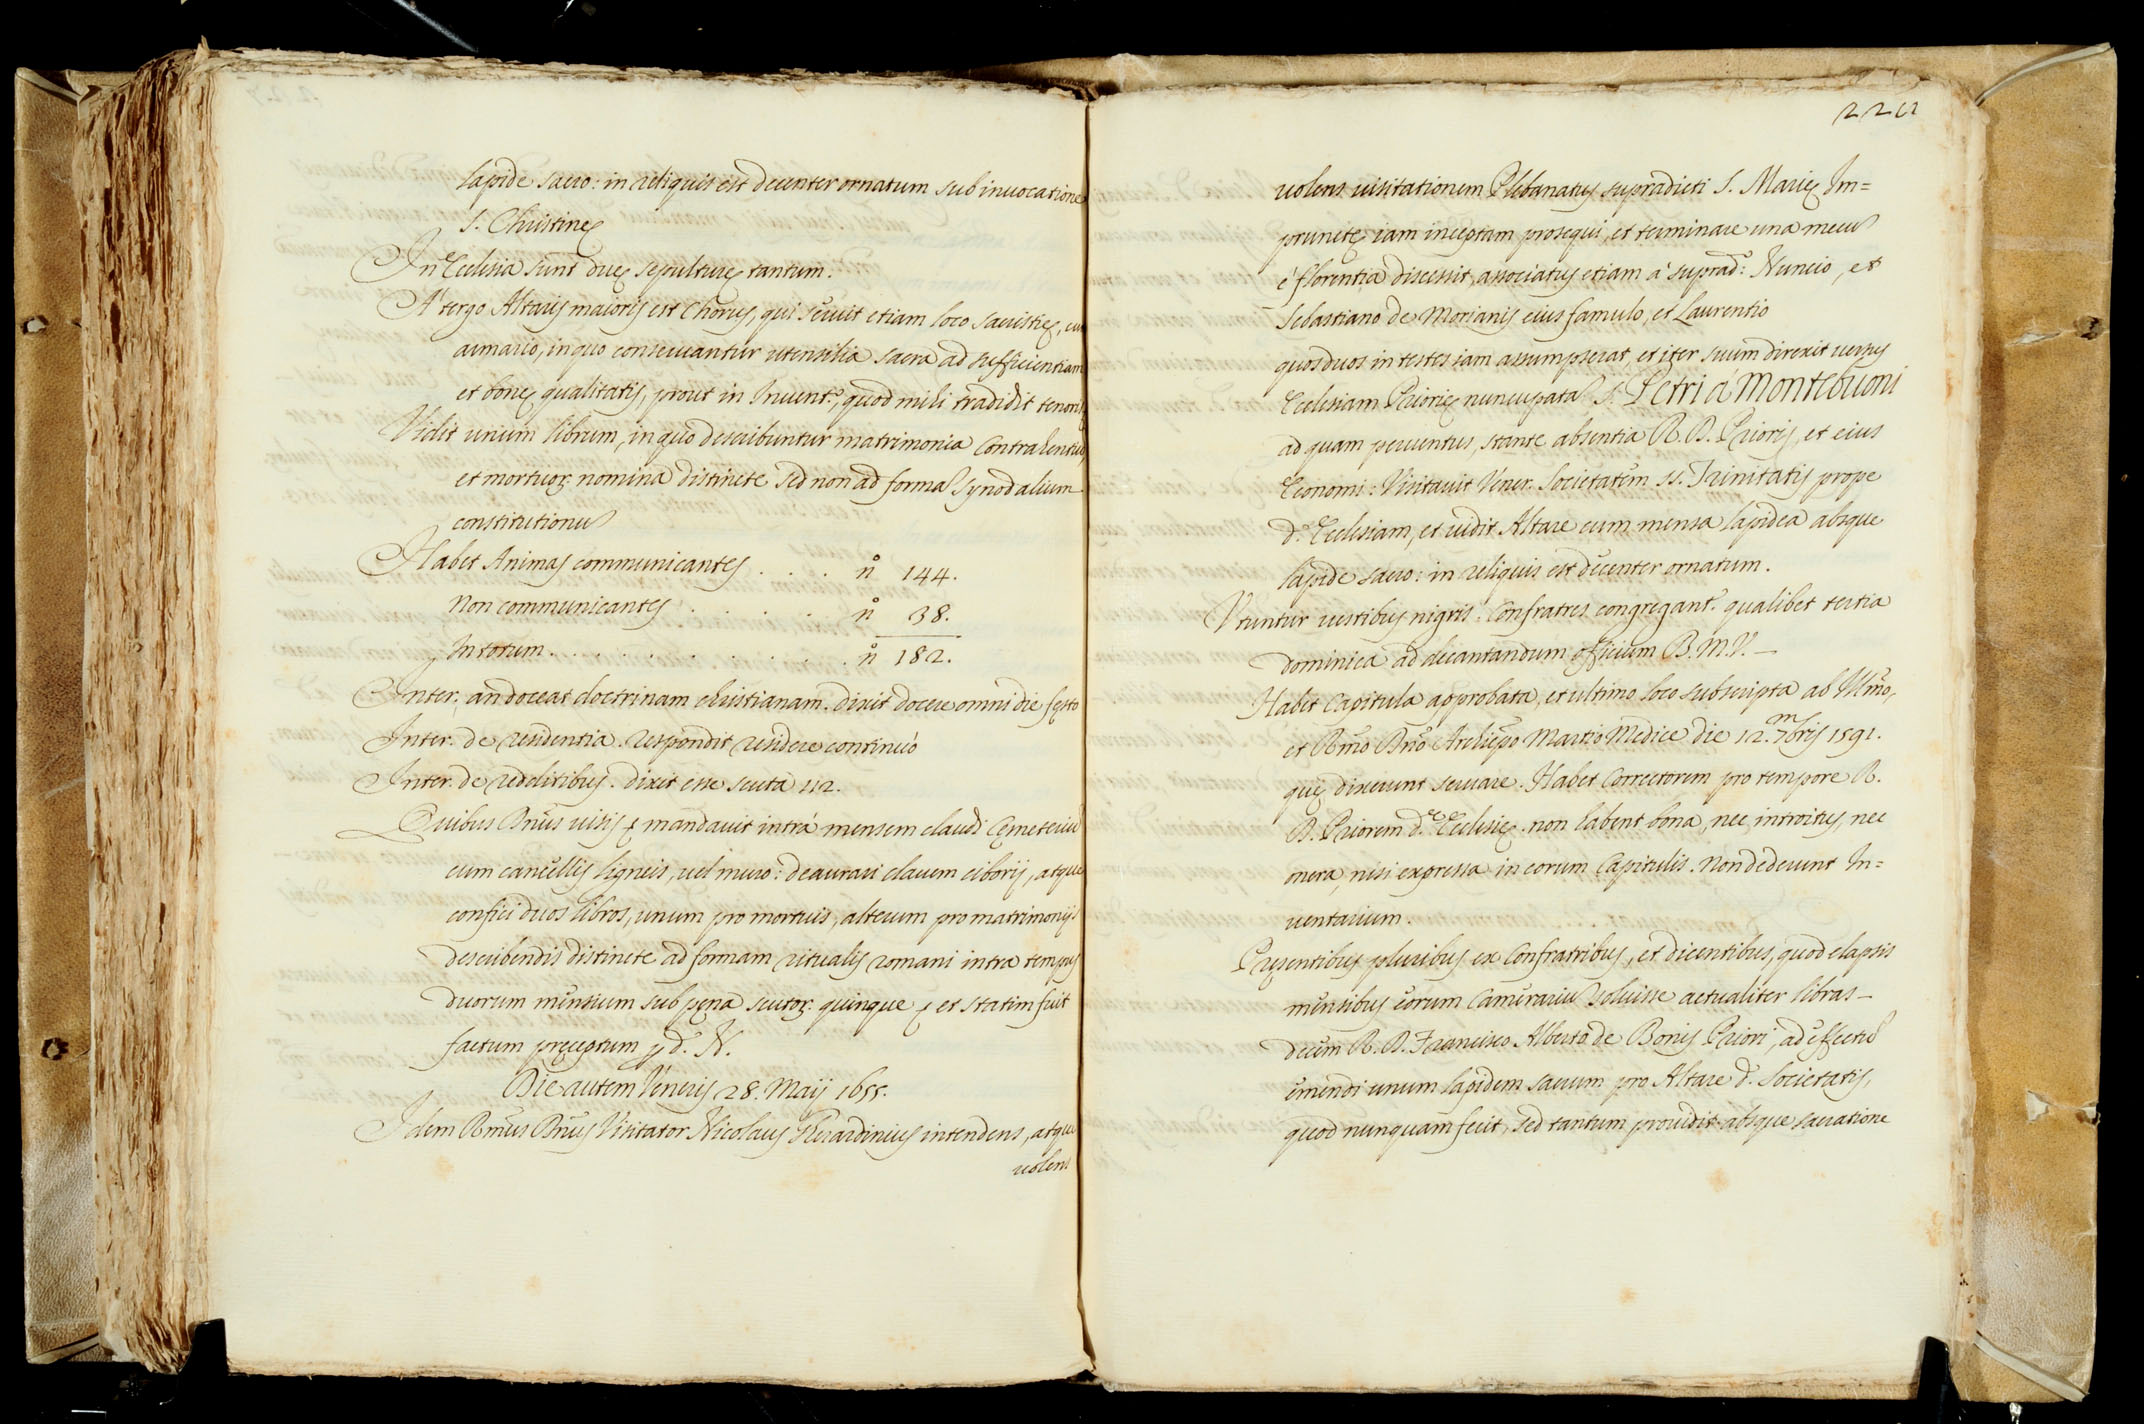 lapide sacro: in reliquis est decenter ornatum sub inuocatione
S. Christinę
In Ecclesia sunt duę sepulturę tantum.
A' tergo Altaris maioris est Chorus, qui seruit etiam loco sacristię, cu
armario, in quo conseruantur utensilia sacra ad sufficientiam
et bonę qualitatis, prout in Inuent.º, quod mihi tradidit tenoris
Vidit unum librum, in quo describuntur matrimonia Contrahentiu,
et mortuoꝝ nomina distincte sed non ad forma Synodalium
constitutionu
Habet Animas communicantes . . . . nº 144.
Non communicantes . . . . . . nº 38.
In totum . . . . . . . . . . . nº 182.
Inter. an doceat doctrinam christianam. dixit docere omni die festo
Inter. de residentia. respondit residere continuò
Inter. de redditibus. dixit esse scuta 112.
Quibus Dnus uisis & mandauit intrà mensem claudi Cęmeteriu
cum cancellis ligneis, uel muro: deaurari clauem ciborij, atque
confici duos libros, unum pro mortuis, alterum pro matrimonijs
describendis distincte ad formam ritualis romani intra tempus
duorum mensium sub pęna scutoꝝ quinque & et statim fuit
factum pręceptum ꝑ d. N.
Die autem Veneris 28. Maij 1655.
Idem Rmus Dnus Visitator Nicolaus Gherardinius intendens, atque
uolens
226
uolens uisitationem Plebanatus supradicti S. Marię Im=
prunetę iam inceptam prosequi, et terminare una mecu
è florentia discessit, associatus etiam à suprad.º Nuncio, et
Sebastiano de Morianis eius famulo, et Laurentio
quos duos in testes iam assumpserat, et iter suum direxit uersus
Ecclesiam Priorię nuncupata S. Petri à Montebuoni
ad quam peruentus, stante absentia R. D. Prioris, et eius
Economi: Visitauit Vener. Societatem SS. Trinitatis prope
d. Ecclesiam, et uidit Altare cum mensa lapidea absque
lapide sacro: in reliquis est decenter ornatum.
Vtuntur uestibus nigris: Confratres congregant.r qualibet tertia
dominica ad decantandum officium B. M. V. —
Habet Capitula approbata, et ultimo loco subscripta ab Illmo,
et Rmo Dno Archiepo Martio Medice die 12. 7mbris 1591.
quę dixerunt seruare. Habet Correctorem pro tempore R.
D. Priorem d.ę Ecclesię. non habent bona, nec introitus, nec
onera, nisi expressa in eorum Capitulis. Non dederunt In=
uentarium.
Pręsentibus pluribus ex Confratribus, et dicentibus, quod elapsis
mensibus eorum Camerariu soluisse actualiter libras —
decem R. D. Francisco Alberto de Bonis Priori, ad effectu
emendi unum lapidem sacrum pro Altare d. Societatis,
quod nunquam fecit, sed tantum prouidit absque sacratione